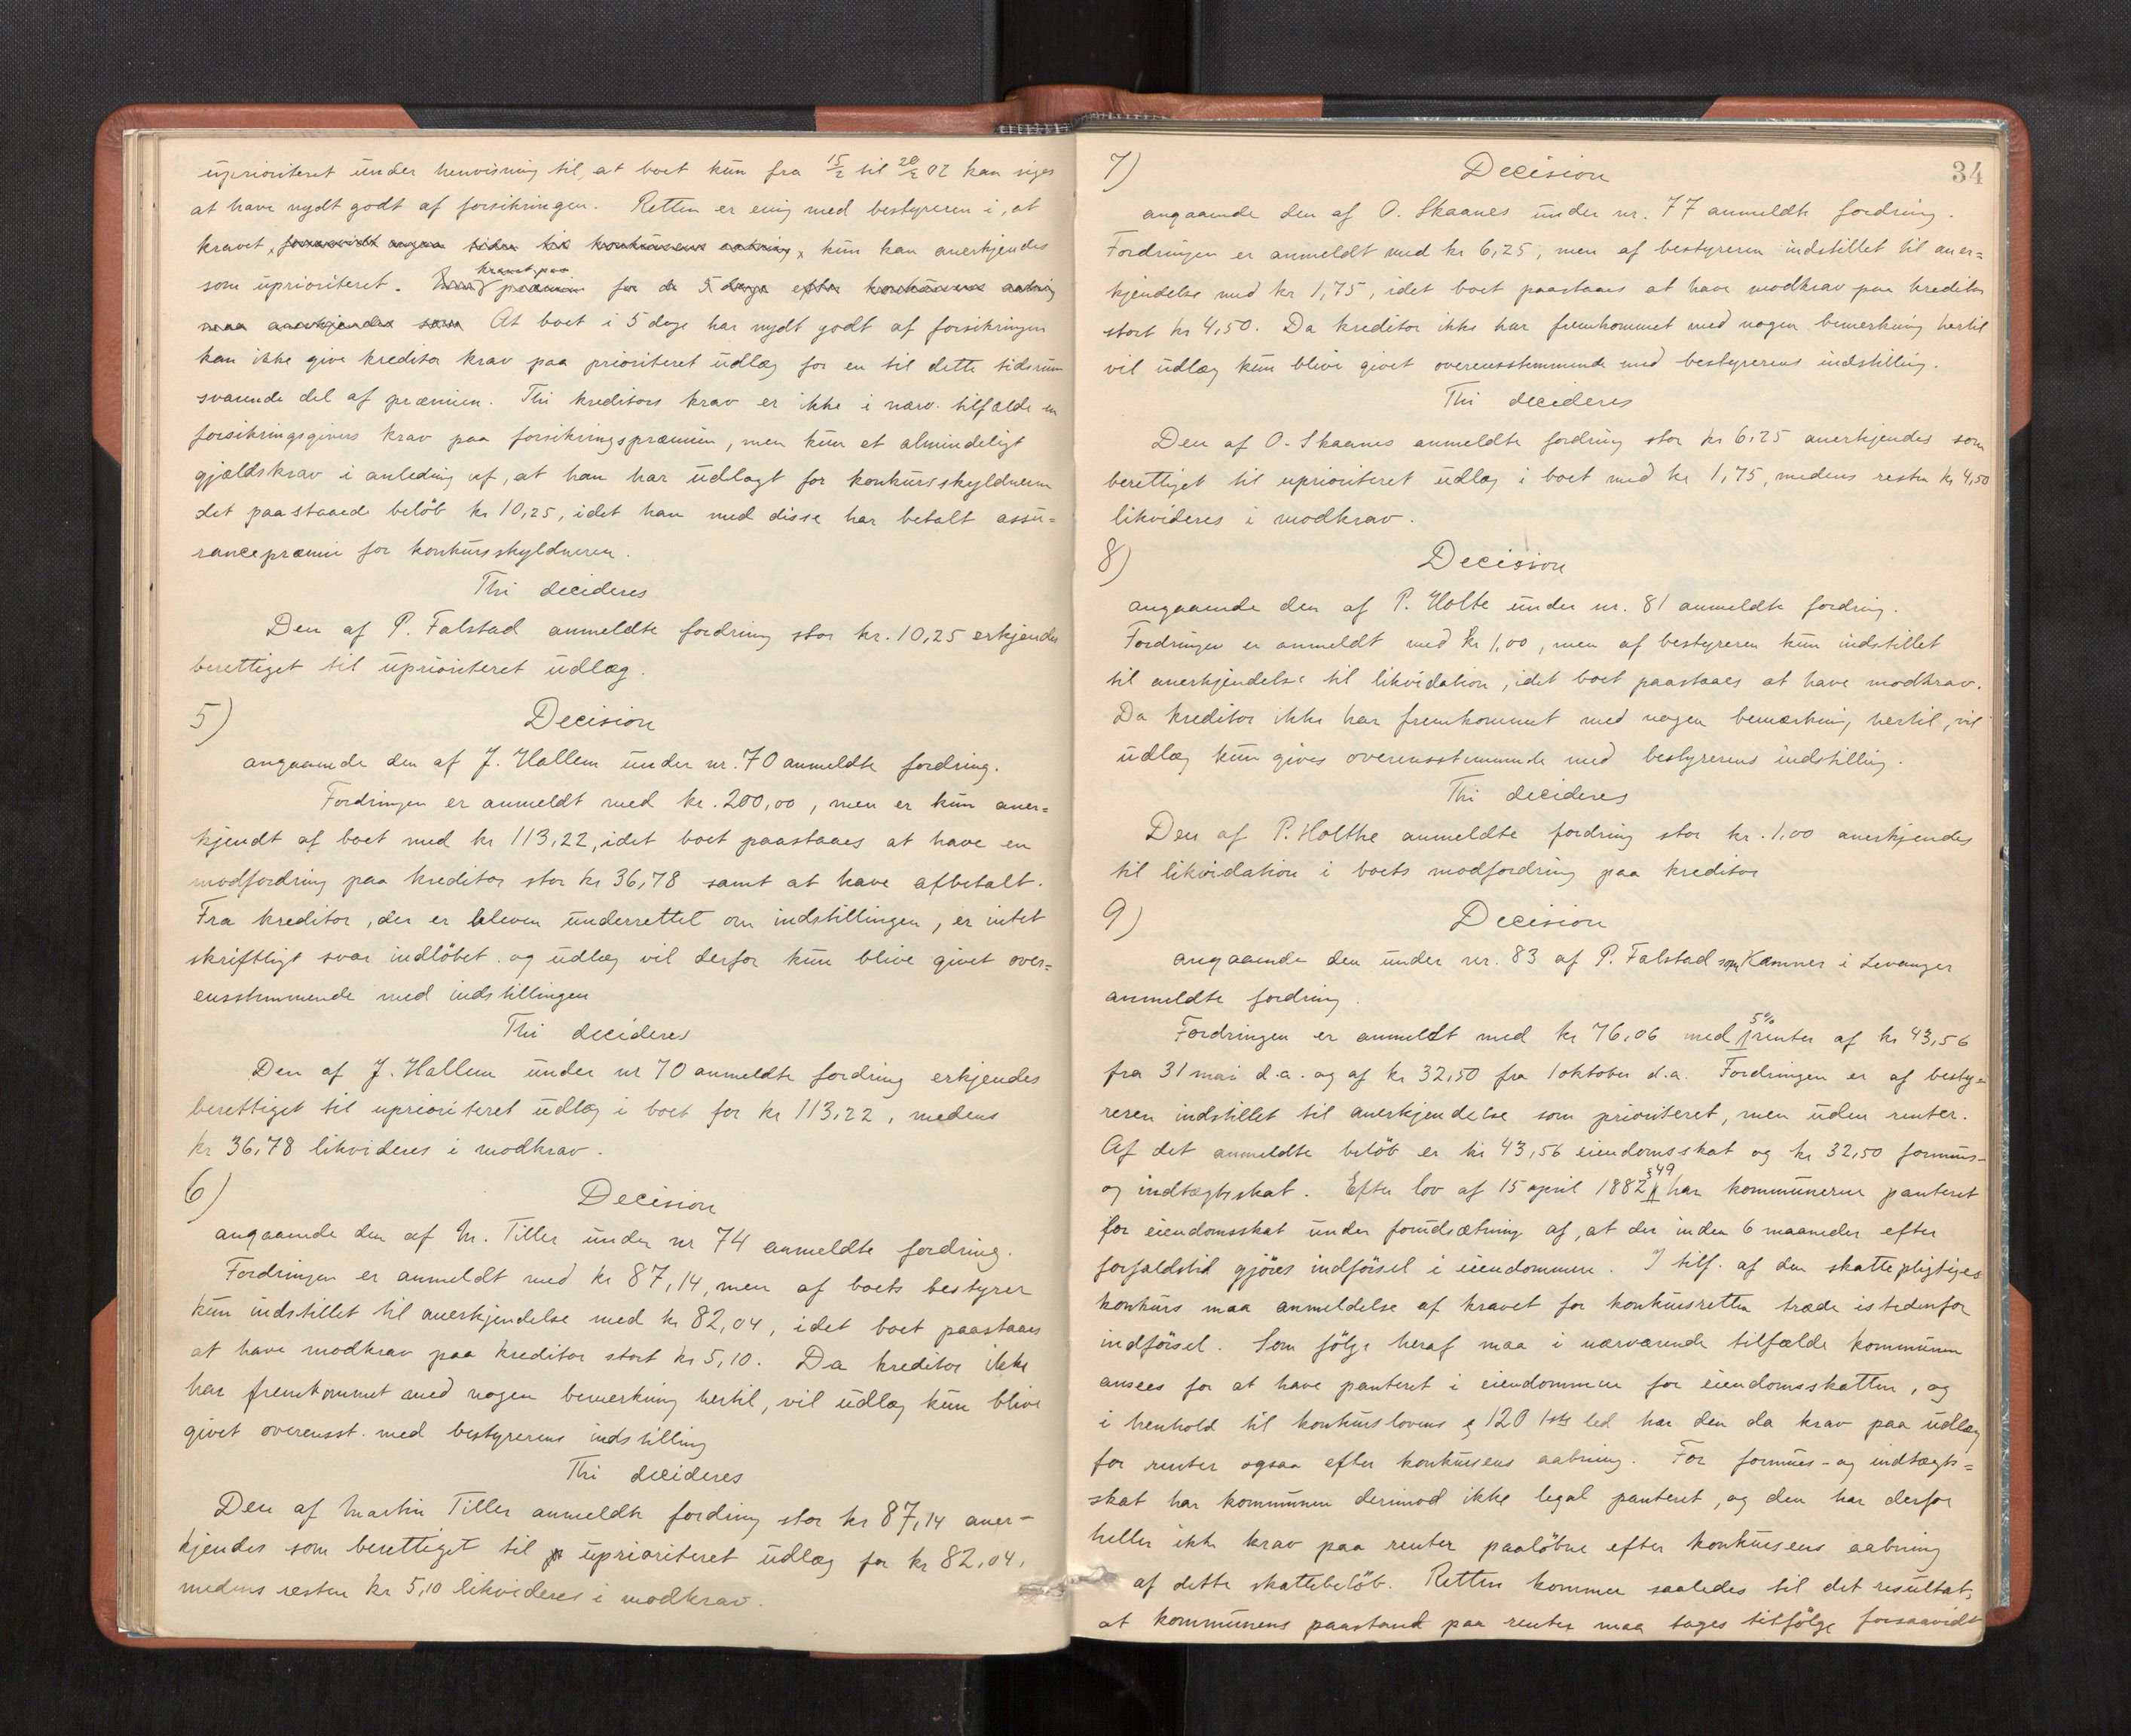 uprioriteret under henvisning til, at boet kun fra 15/2 til 20/2 02 kan siges
at have nydt godt af forsikringen. Retten er enig med bestyreren i, at
kravet, forsaavidt angaar tiden til konkursens aabning, kun kan anerkjendes
som uprioriteret. kravet paa præmien for de 5 dage efter konkursens aabning
maa anerkjendes som At boet i 5 dage har nydt godt af forsikringen
kan ikke give kreditor krav paa prioriteret udlæg for en til dette tidsrum
svarende del af præmien. Thi kreditors krav er ikke i nærv. tilfælde en
forsikringsgivers krav paa forsikringspræmien, men kun et almindeligt
gjældskrav i anledning af, at han har udlagt for konkursskyldneren
det paastaaede beløb kr 10,25, idet han med disse har betalt assu=
rancepræmie for konkursskyldneren.
Thi decideres
Den af P. Falstad anmeldte fordring stor kr. 10,25 erkjendes
berettiget til uprioriteret udlæg.
5) Decision
angaaende den af J. Hallem under nr. 70 anmeldte fordring.
Fordringen er anmeldt med kr. 200,00, men er kun aner=
kjendt af boet med kr 113,22, idet boet paastaaes at have en
modfordring paa kreditor stor kr 36,78 samt at have afbetalt.
Fra kreditor, der er bleven underrettet om indstillingen, er intet
skriftligt svar indløbet og udlæg vil derfor kun blive givet over=
ensstemmende med indstillingen
Thi decideres
Den af J. Hallem under nr 70 anmeldte fordring erkjendes
berettiget til uprioriteret udlæg i boet for kr 113,22, medens
kr 36,78 likvideres i modkrav.
6) Decision
angaaende den af M. Tiller under nr 74 anmeldte fordring.
Fordringen er anmeldt med kr 87,14, men af boets bestyrer
kun indstillet til anerkjendelse med kr 82,04, idet boet paastaaes
at have modkrav paa kreditor stort kr 5,10. Da kreditor ikke
har fremkommet med nogen bemerkning hertil, vil udlæg kun blive
givet overensst. med bestyrerens indstilling
Thi decideres
Den af Martin Tiller anmeldte fordring stor kr 87,14 aner-
kjendes som berettiget til uprioriteret udlæg for kr 82,04,
medens resten kr 5,10 likvideres i modkrav.
34
7) Decision
angaaende den af O. Skaanes under nr. 77 anmeldte fordring.
Fordringen er anmeldt med kr 6,25, men af bestyreren indstillet til aner=
kjendelse med kr 1,75, idet boet paastaaes at have modkrav paa kreditor
stort kr 4,50. Da kreditor ikke har fremkommet med nogen bemerkning hertil
vil udlæg kun blive givet overensstemmende med bestyrerens indstilling.
Thi decideres
Den af O. Skaanes anmeldte fordring stor kr 6,25 anerkjendes som
berettiget til uprioriteret udlæg i boet med kr 1,75, medens resten kr 4,50
likvideres i modkrav.
8) Decision
angaaende den af P. Holte under nr. 81 anmeldte fordring.
Fordringen er anmeldt med kr 1,00, men af bestyreren kun indstillet
til anerkjendelse til likvidation, idet boet paastaaes at have modkrav.
Da kreditor ikke har fremkommet med nogen bemærkning hertil, vil
udlæg kun gives overensstemmende med bestyrerens indstilling.
Thi decideres
Den af P. Holthe anmeldte fordring stor kr. 1,00 anerkjendes
til likvidation i boets modfordring paa kreditor
9) Decision
angaaende den under nr. 83 af P. Falstad som Kæmner i Levanger
anmeldte fordring.
Fordringen er anmeldt med kr 76,06 med 5% renter af kr 43,56
fra 31 mai d.a. og af kr 32,50 fra 1 oktober d.a. Fordringen er af besty=
reren indstillet til anerkjendelse som prioriteret, men uden renter.
Af det anmeldte beløb er kr 43,56 eiendomsskat og kr 32,50 formues-
og indtægtsskat. Efter lov af 15 april 1882 § 49 har kommunerne panteret
for eiendomsskat under forudsætning af, at der inden 6 maaneder efter
forfaldstid gjøres indførsel i eiendommen. I tilf. af den skattepligtiges
konkurs maa anmeldelse af kravet for konkursretten træde istedenfor
indførsel. Som følge heraf maa i nærværende tilfælde kommunen
ansees for at have panteret i eiendommen for eiendomsskatten, og
i henhold til konkurslovens § 120 1ste led har den da krav paa udlæg
for renter ogsaa efter konkursens aabning. For formues- og indtægts=
skat har kommunen derimod ikke legal panteret, og den har derfor
heller ikke krav paa renter paaløbne efter konkursens aabning
af dette skattebeløb. Retten kommer saaledes til det resultat,
at kommunens paastand paa renter maa tages tilfølge forsaavidt